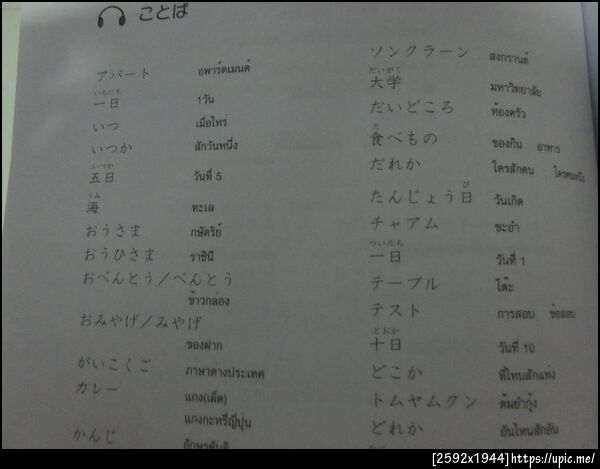 ことば
アパート อพาร์ตเมนต์
いちにち
一日 1วัน
いつ เมื่อไหร่
いつか สักวันหนึ่ง
いつか
五日 วันที่ 5
うみ
海 ทะเล
おうさま กษัตริย์
おうひさま ราชินี
おべんとう/べんとう
ข้าวกล่อง
おみやげ/みやげ
ของฝาก
がいこくご ภาษาต่างประเทศ
カレー แกง(เผ็ด)
แกงกะหรี่ญี่ปุ่น
かんじ อักษรคันจิ
ソンクラーン สงกรานต์
だいがく
大学 มหาวิทยาลัย
だいどころ ห้องครัว
た
食べもの ของกิน อาหาร
だれか ใครสักคน ใครคนหนึ่ง
び
たんじょう日 วันเกิด
チャアム ชะอำ
ついたち
一日 วันที่ 1
テーブル โต๊ะ
テスト การสอบ ข้อสอบ
とおか
十日 วันที่ 10
どこか ที่ไหนสักแห่ง
トムヤムクン ต้มยำกุ้ง
どれか อันไหนสักอัน
[2592x1944]https://upic.me/